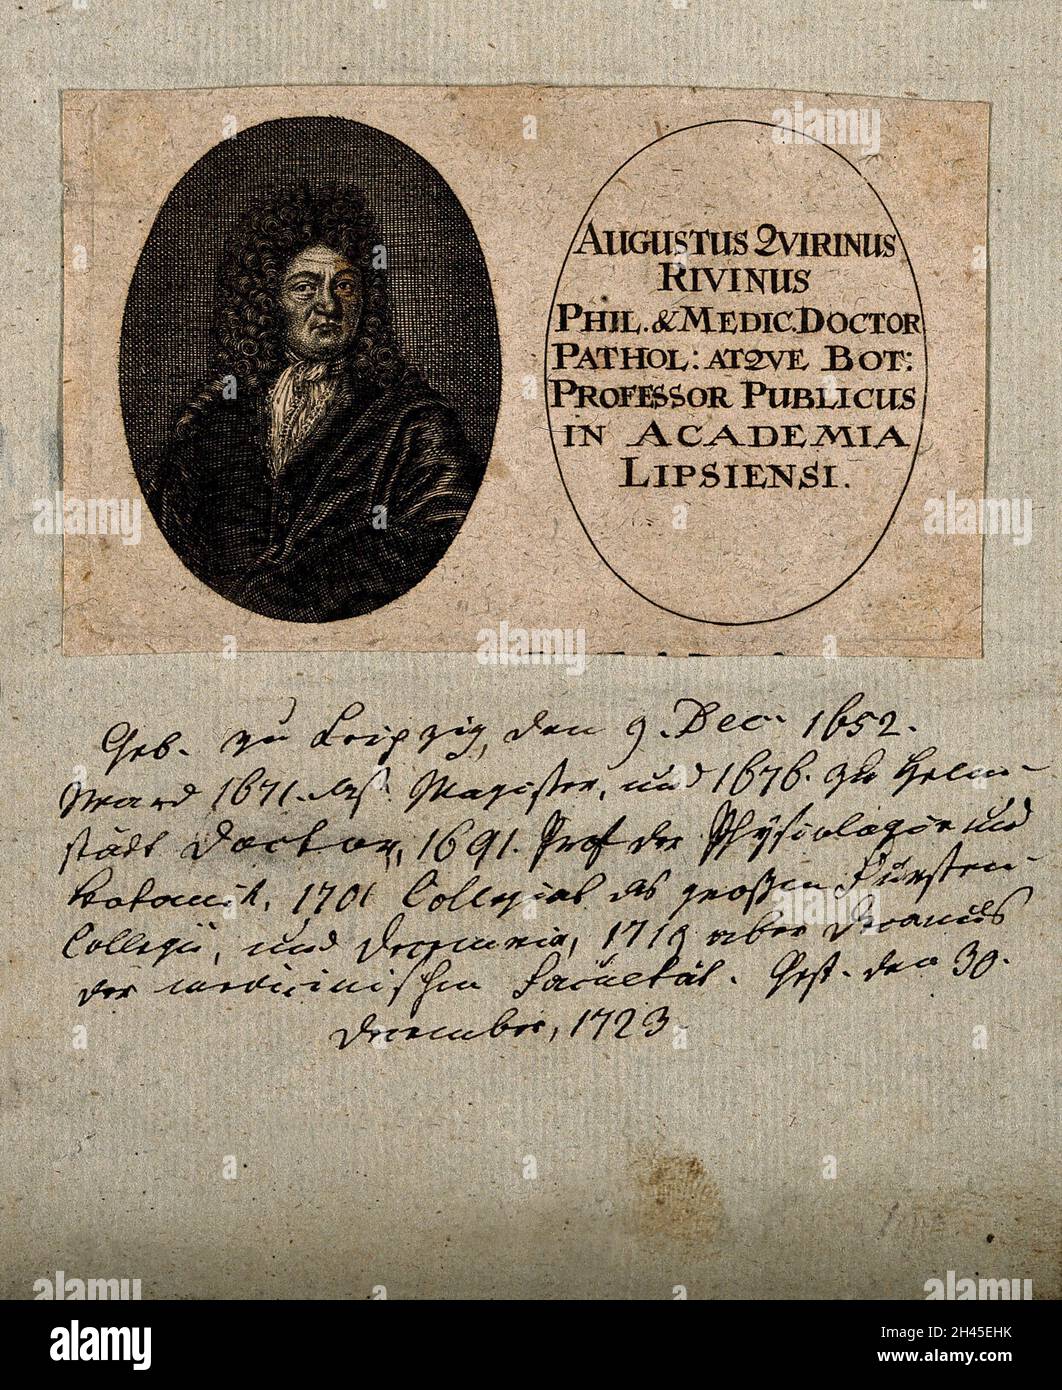 AUGUSTUS QVIRINUS
RIVINUS
PHIL. & MEDIC. DOCTOR
PATHOL: ATQVE BOT:
PROFESSOR PUBLICUS
IN ACADEMIA
LIPSIENSI.
Geb. zu Leipzig, den 9. Dec. 1652.
Ward 1671. Magister, und 1676. zu Helm-
städt Doctor, 1691. Prof der Physiologie und
Botanik, 1701 Collegiat des großen Fürsten-
Collegii, und 1719 aber Decanus
der medicinischen Facultät. Gest. den 30.
December, 1723.
alamy
alamy
Image ID: 2H45EHK
www.alamy.com